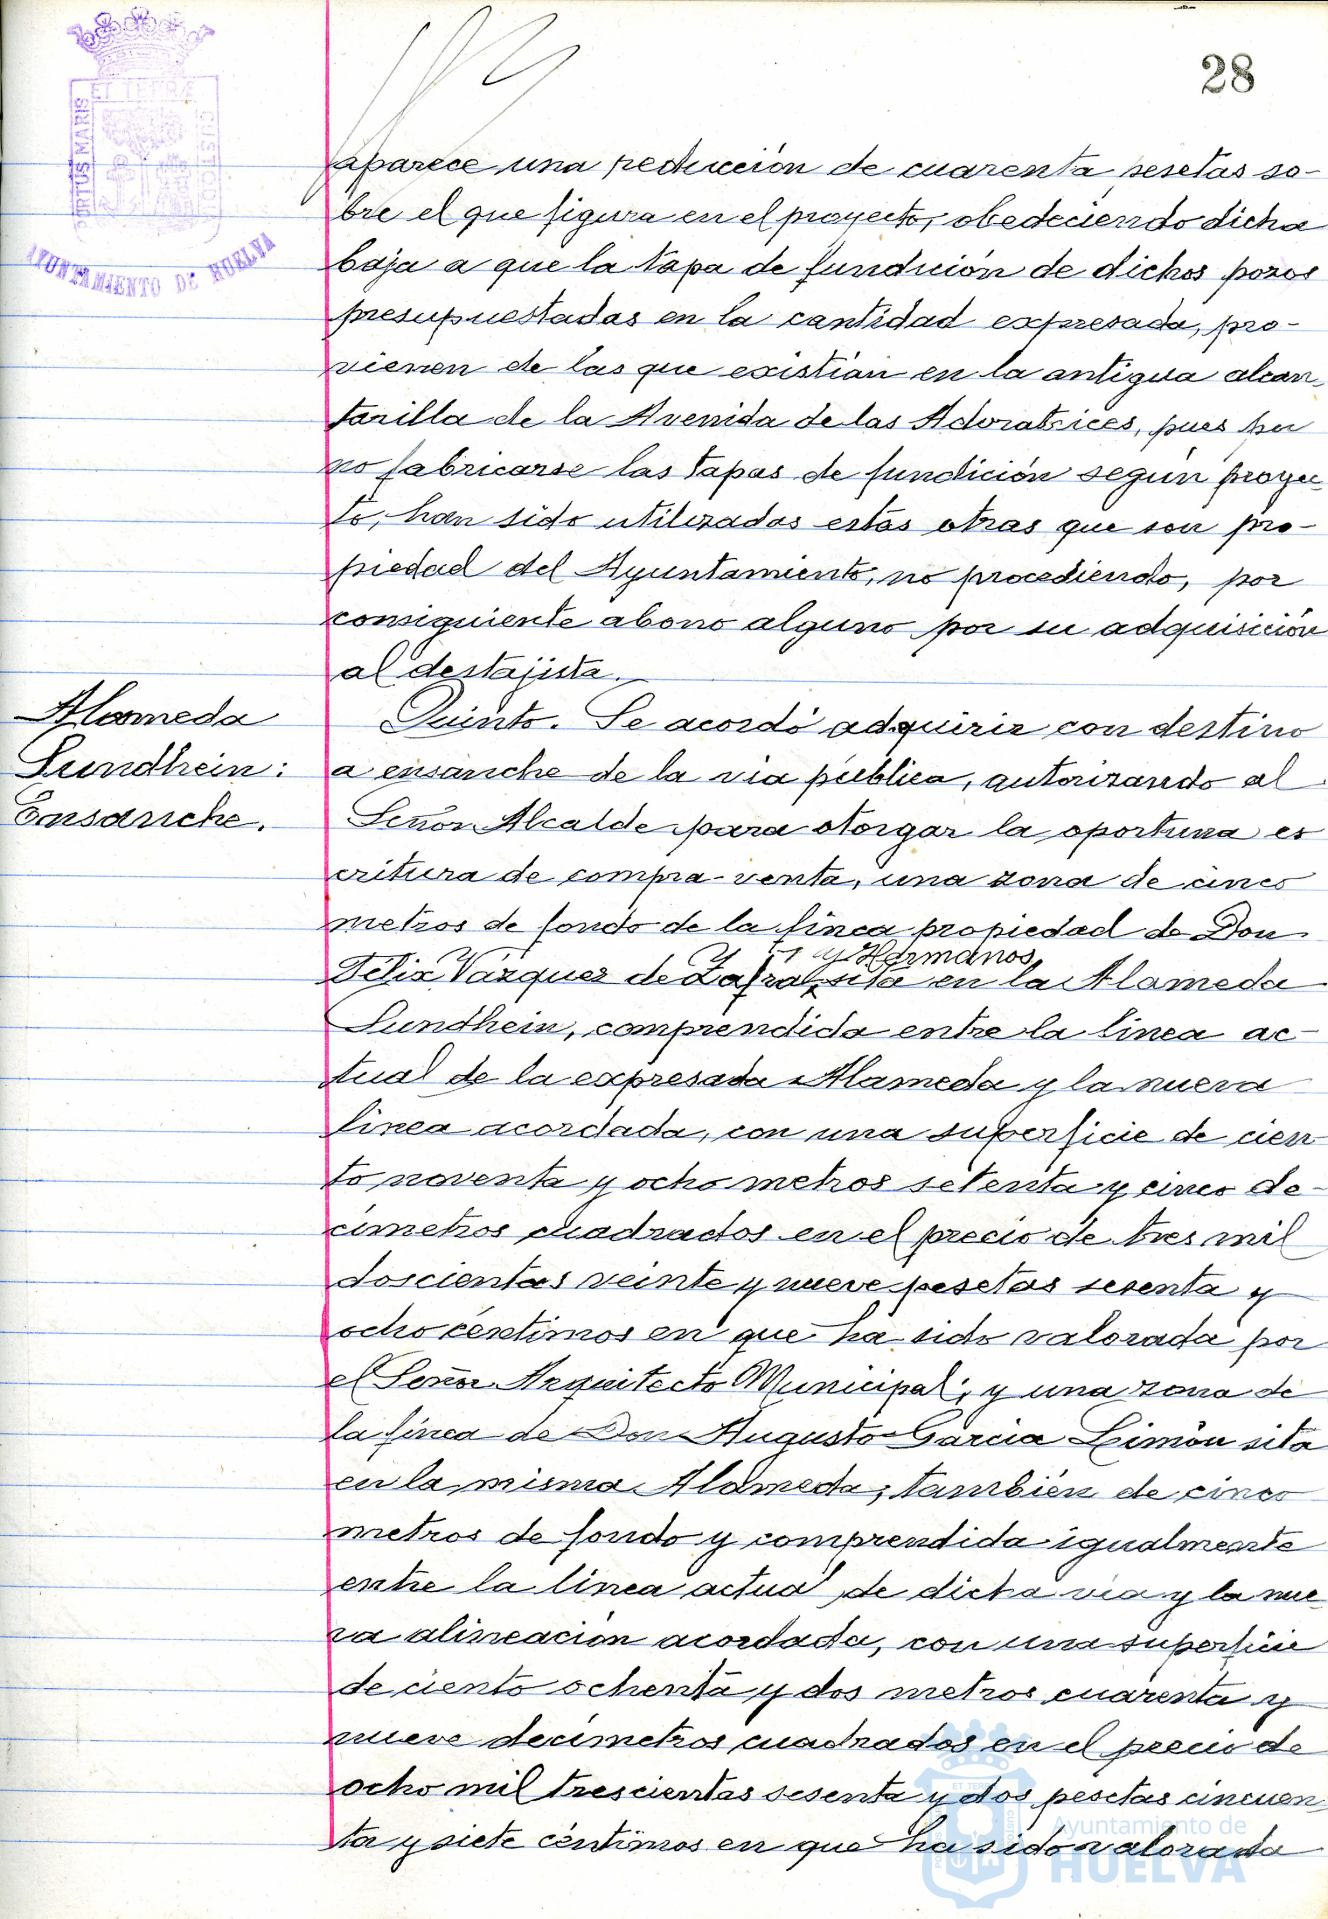 28
ET TERRÆ
PORTUS MARIS
CUSTODIA
AYUNTAMIENTO DE HUELVA
aparece una reducción de cuarenta pesetas so-
bre el que figura en el proyecto, obedeciendo dicha
baja a que la tapa de fundición de dichos pozos
presupuestadas en la cantidad expresada, pro-
vienen de las que existían en la antigua alcan-
tarilla de la Avenida de las Adoratrices, pues por
no fabricarse las tapas de fundición según proyec-
to, han sido utilizadas estas otras que son pro-
piedad del Ayuntamiento, no procediendo, por
consiguiente abono alguno por su adquisición
al destajista.
Alameda
Sundhein:
Ensanche.
Quinto. Se acordó adquirir con destino
a ensanche de la vía pública, autorizando al
Señor Alcalde para otorgar la oportuna es
critura de compra-venta, una zona de cinco
metros de fondo de la finca propiedad de Don
y Hermanos
Félix Vázquez de Zafra, sita en la Alameda
Sundhein, comprendida entre la línea ac-
tual de la expresada Alameda y la nueva
línea acordada, con una superficie de cien
to noventa y ocho metros setenta y cinco de-
címetros cuadrados en el precio de tres mil
doscientas veinte y nueve pesetas sesenta y
ocho céntimos en que ha sido valorada por
el Señor Arquitecto Municipal; y una zona de
la finca de Don Augusto García Limón sita
en la misma Alameda, también de cinco
metros de fondo y comprendida igualmente
entre la línea actual de dicha vía y la nue-
va alineación acordada, con una superficie
de ciento ochenta y dos metros cuarenta y
nueve decímetros cuadrados en el precio de
ocho mil trescientas sesenta y dos pesetas cincuen-
ta y siete céntimos en que ha sido valorada
Ayuntamiento de
HUELVA